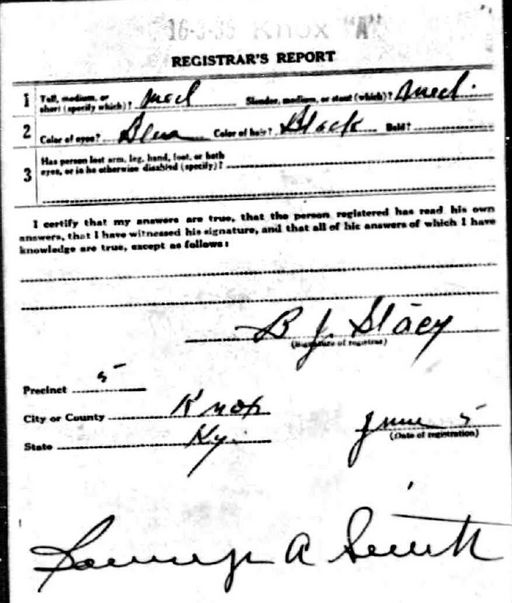 16-3-35 Knox "A"
REGISTRAR'S REPORT
1 Tall, medium, or short (specify which)? Med Slender, medium, or stout (which)? Med.
2 Color of eyes? Blue Color of hair? Black Bald?
3 Has person lost arm, leg, hand, foot, or both
eyes, or is he otherwise disabled (specify)?
I certify that my answers are true, that the person registered has read his own
answers, that I have witnessed his signature, and that all of his answers of which I have
knowledge are true, except as follows:
B J. Stacy
(Signature of registrar)
Precinct 5
City or County Knox
State Ky.
June 5
(Date of registration)
A Smith